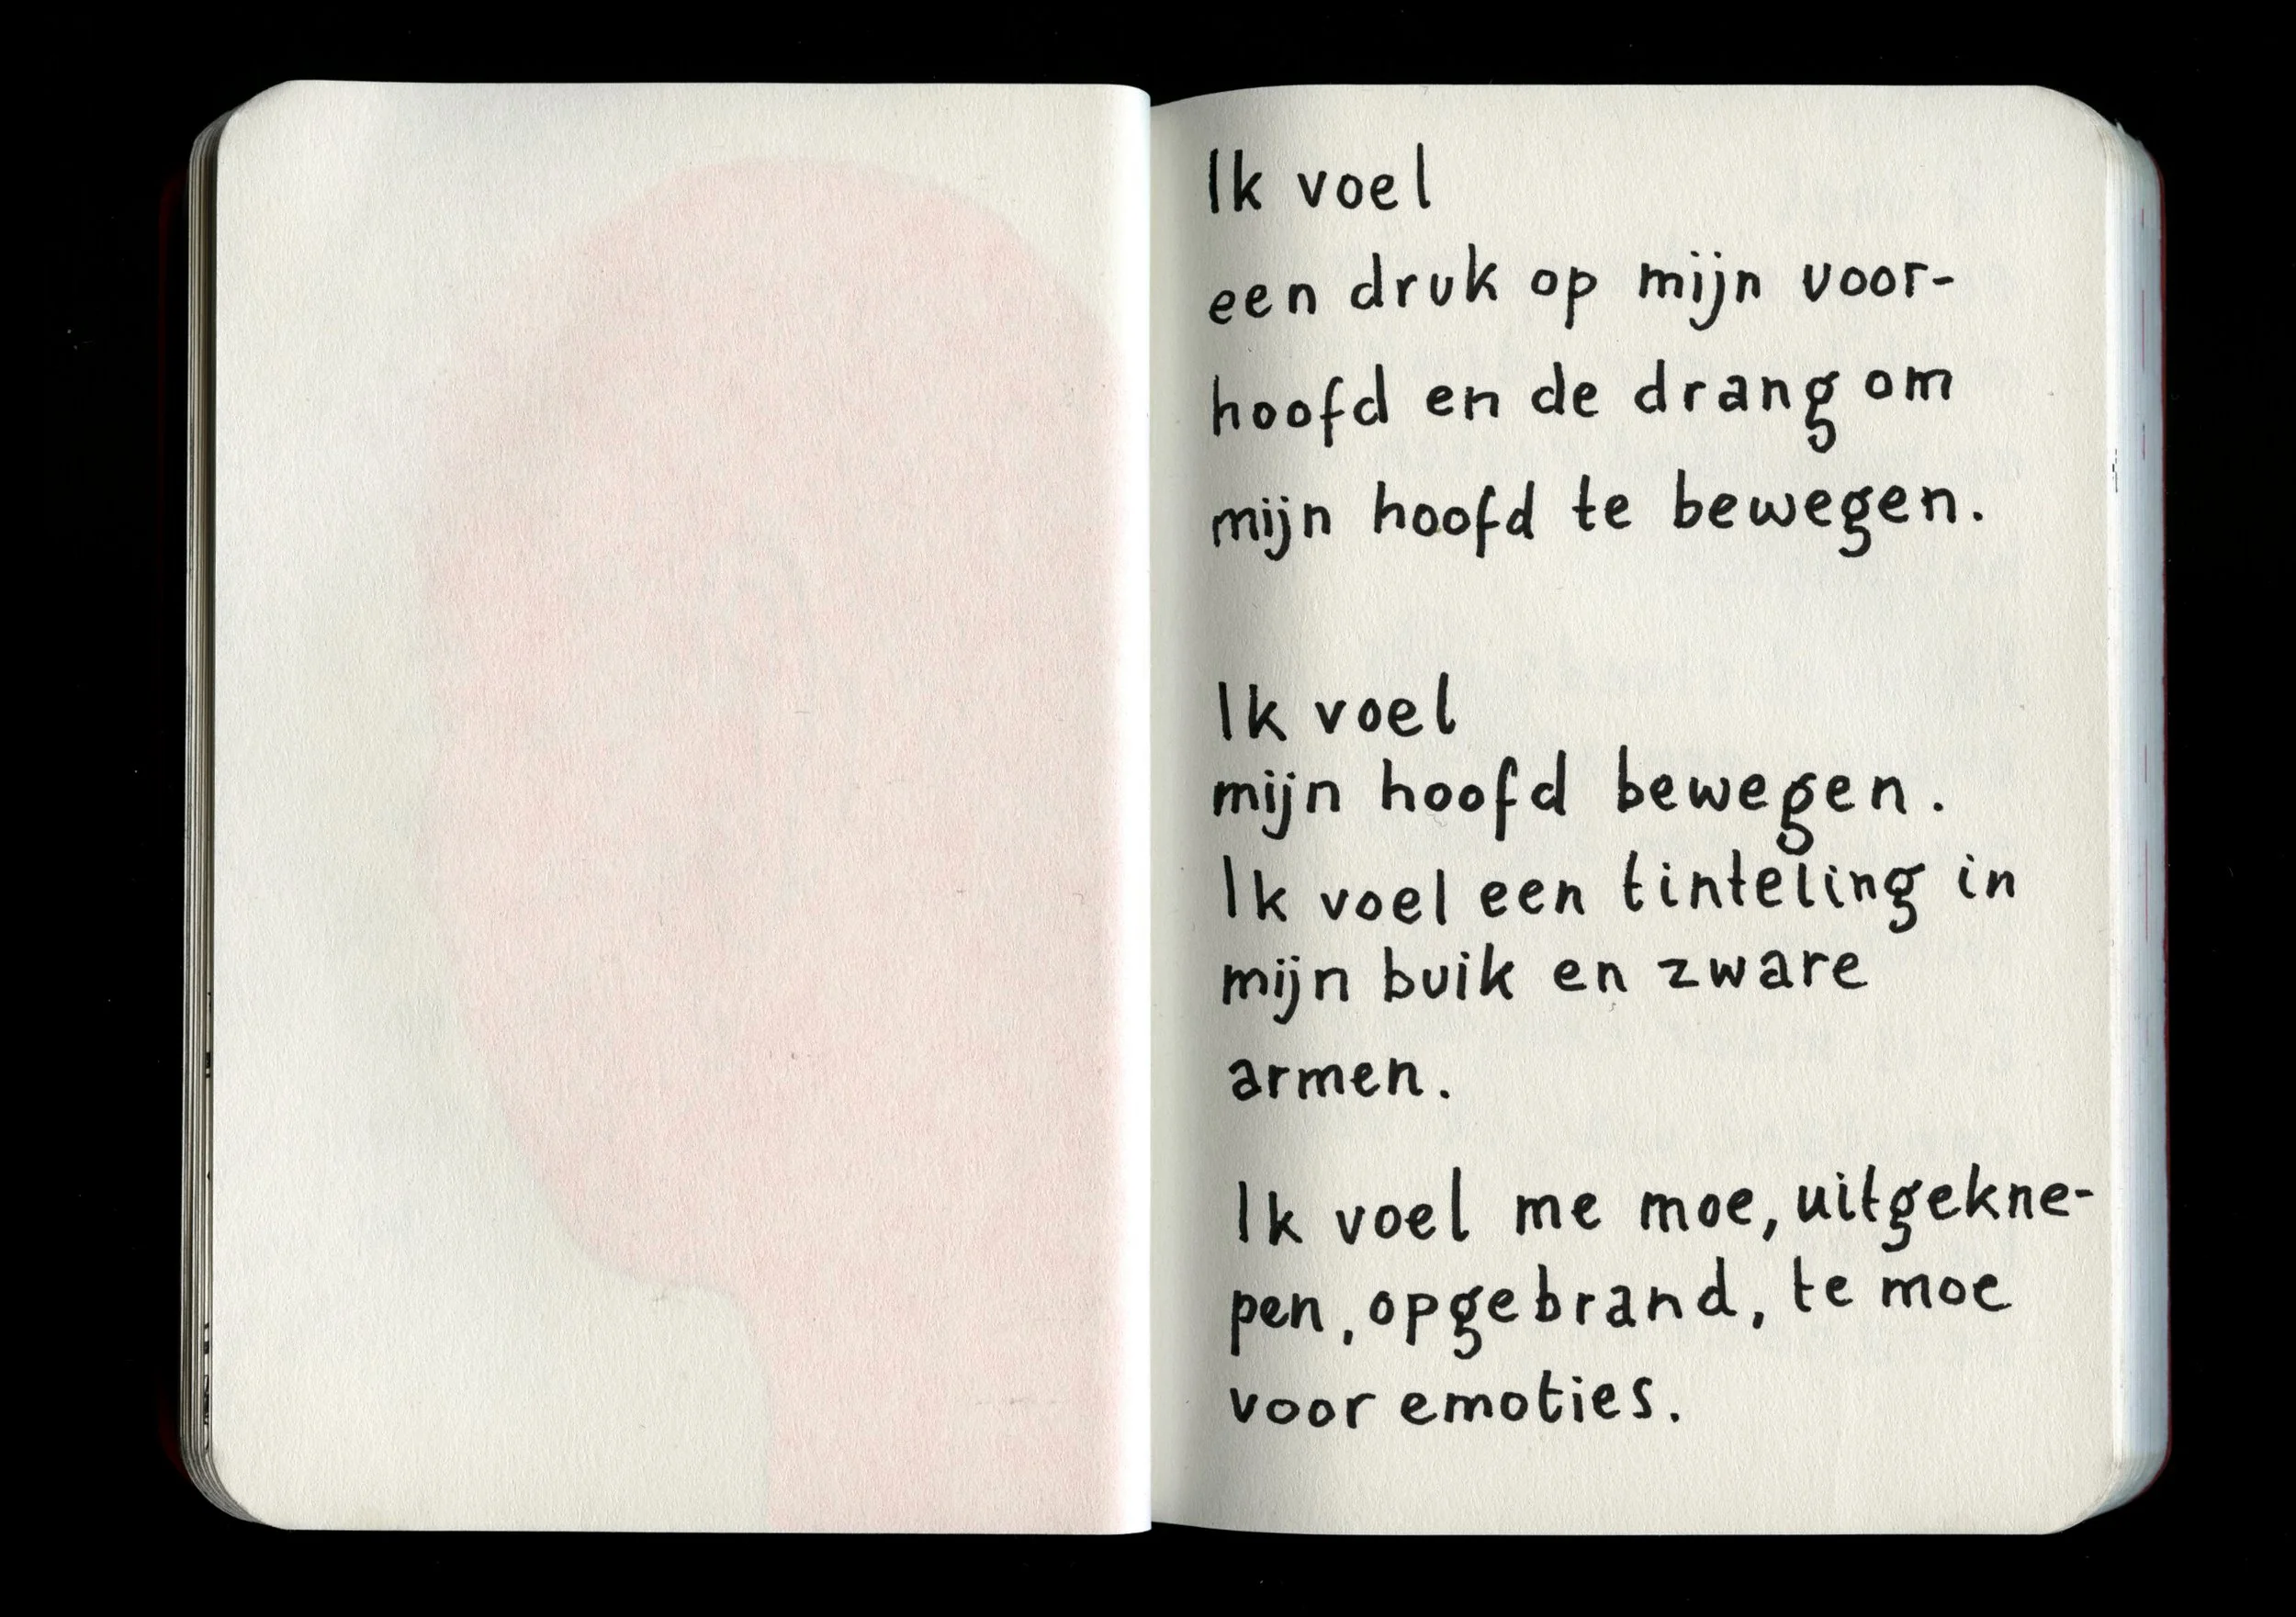 Ik voel
een druk op mijn voor-
hoofd en de drang om
mijn hoofd te bewegen.
Ik voel
mijn hoofd bewegen.
Ik voel een tinteling in
mijn buik en zware
armen.
Ik voel me moe, uitgekne-
pen, opgebrand, te moe
voor emoties.